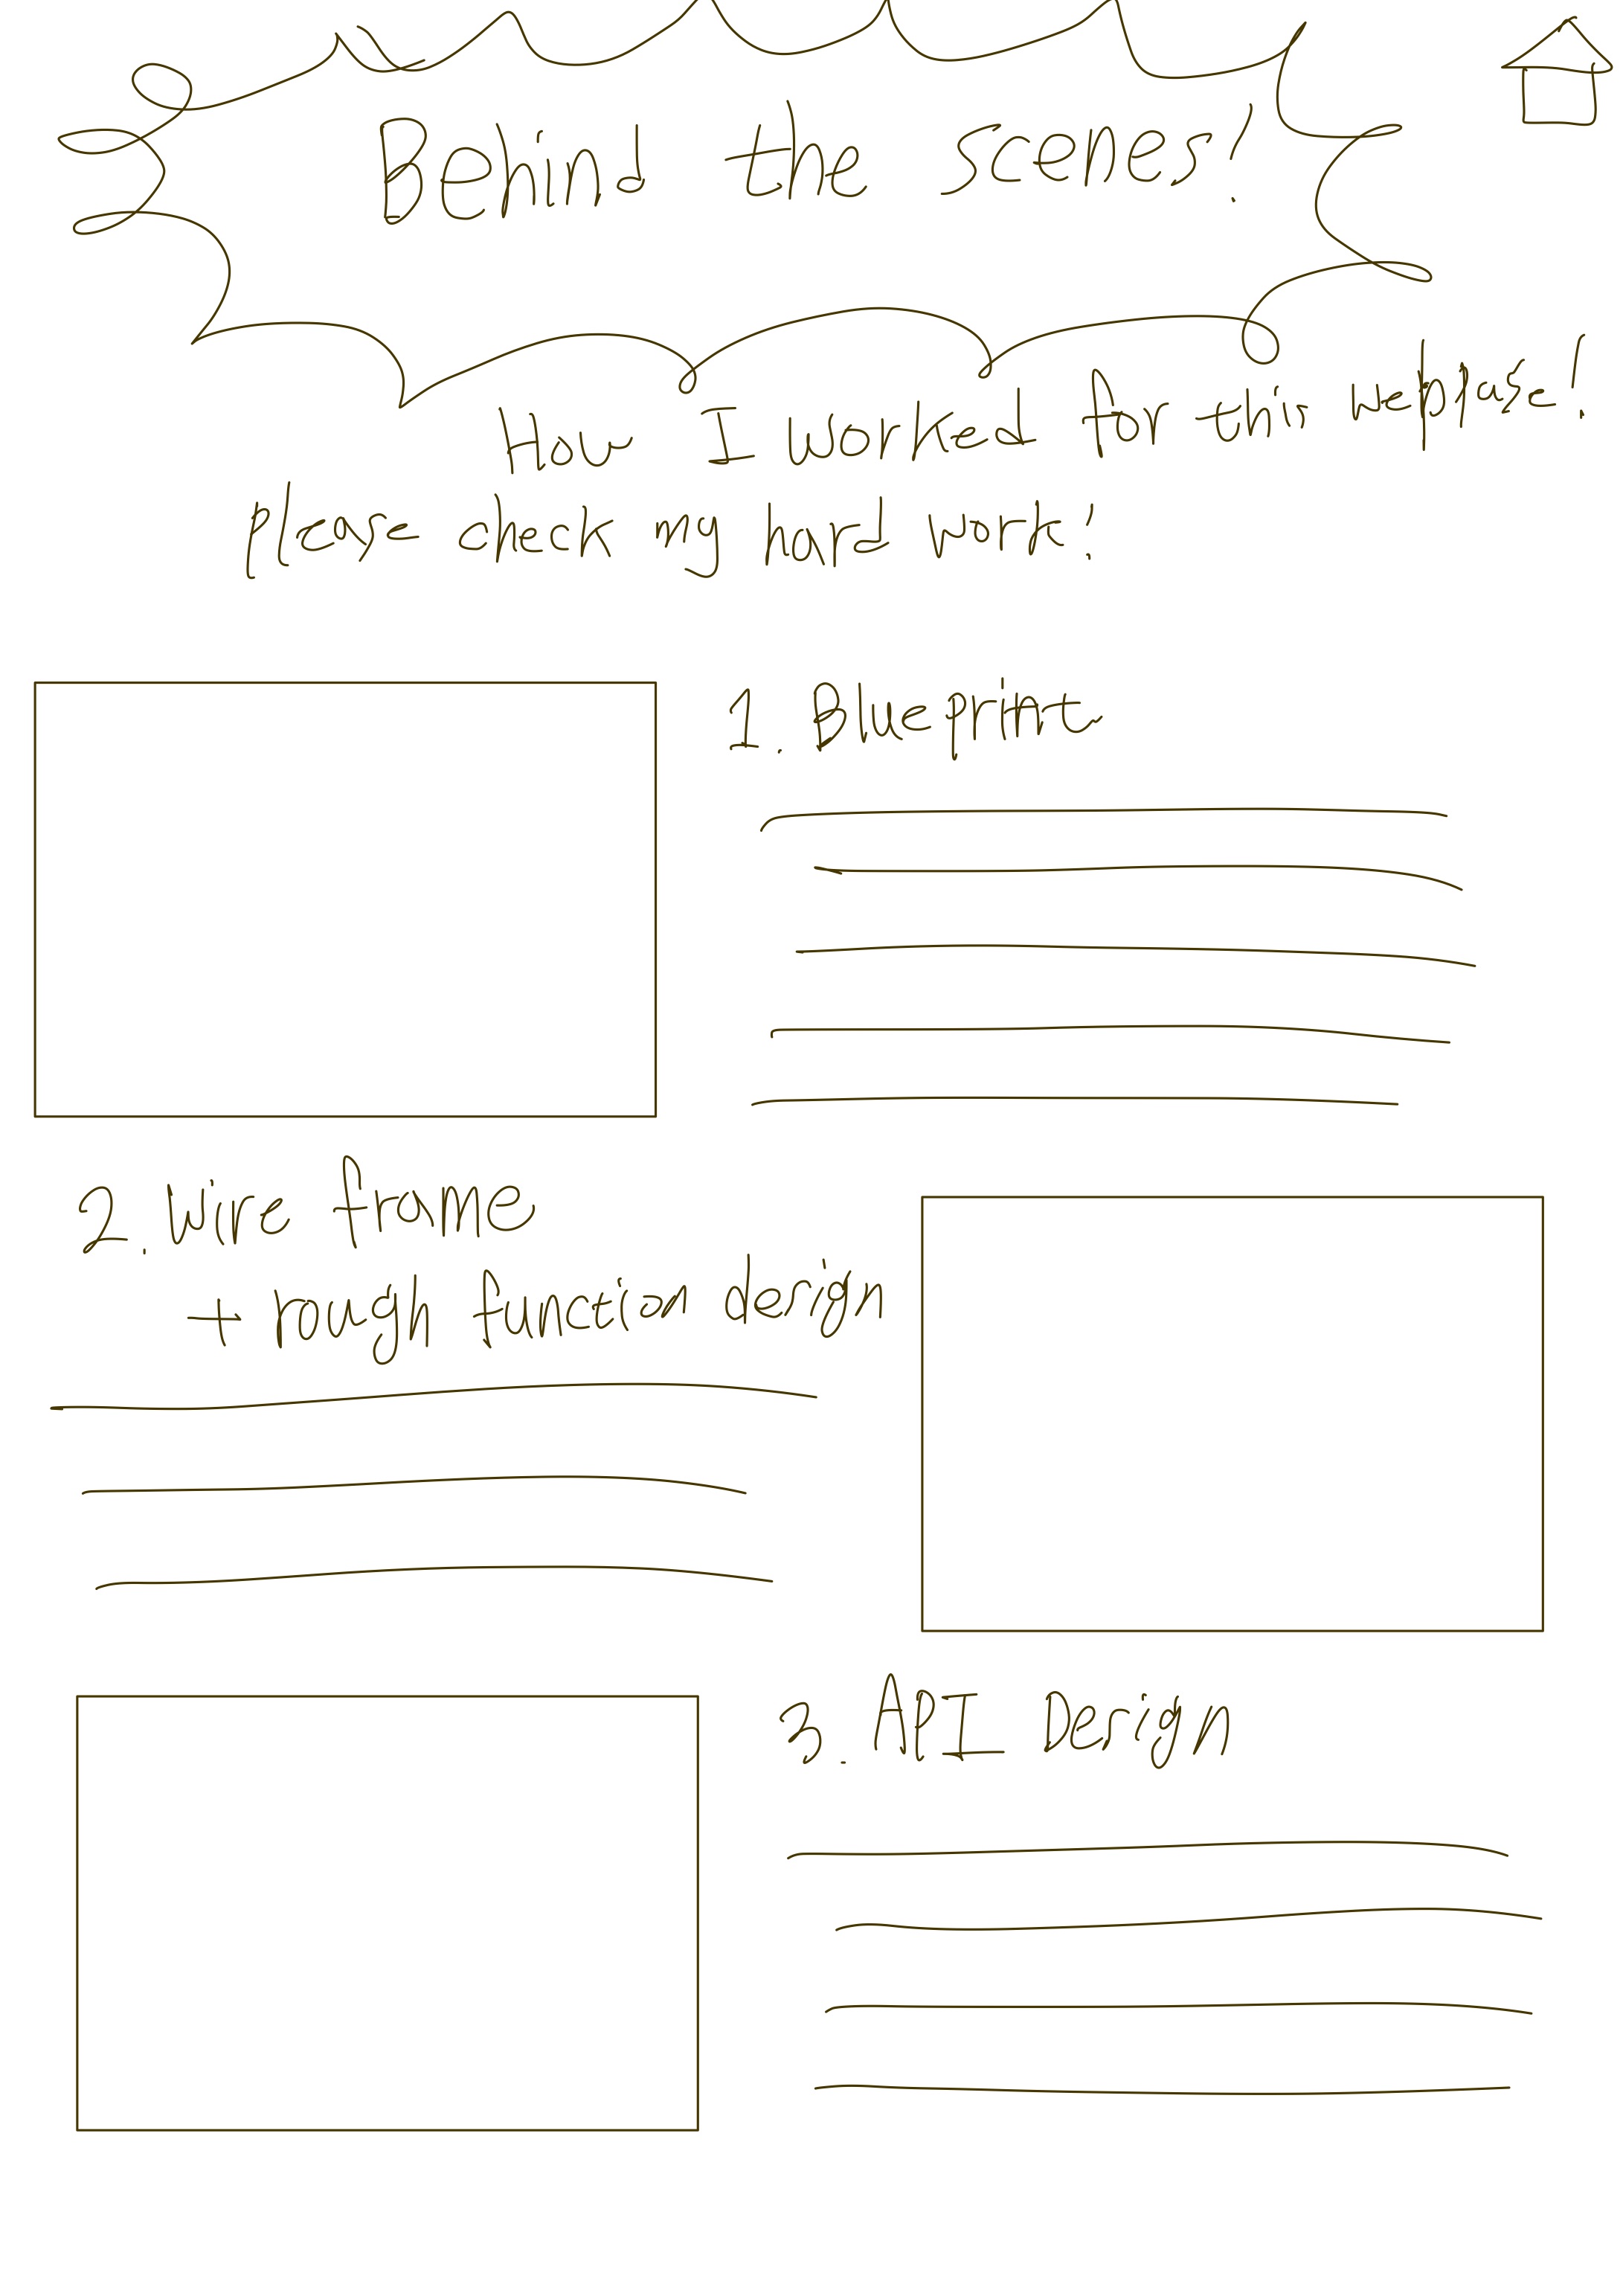 Behind the scenes!
How I worked for this webpage!
please check my hard work!
1. Blueprint
2. Wire frame
+ rough function design
3. API Design